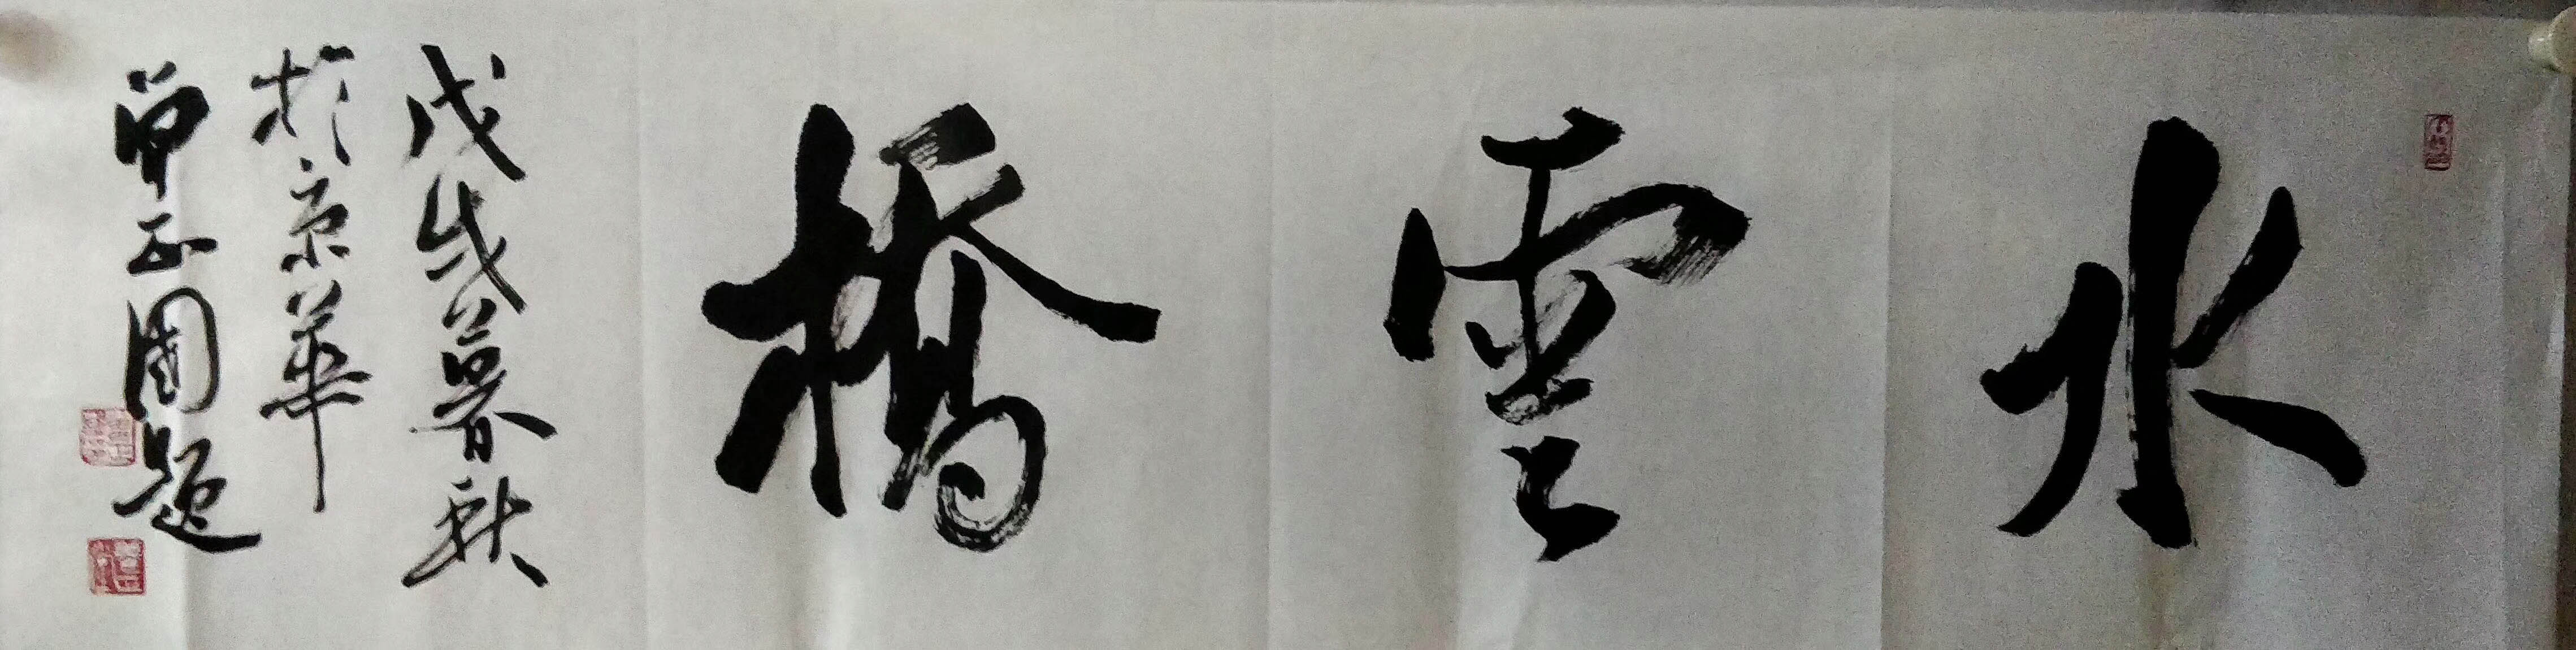 水雲橋
戊戌暮秋
於京華
單正國題